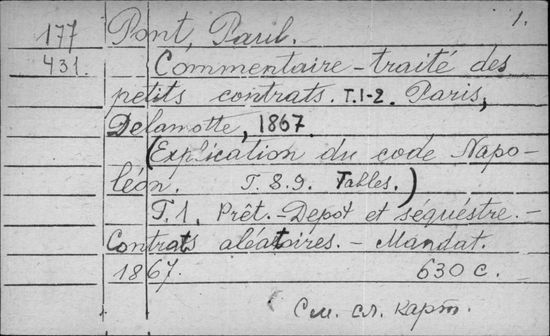 1.
177 Pont, Paul.
431. Commentaire-traité des
petits contrats. T.1-2. Paris,
Delamotte, 1867.
(Explication du code Napo-
léon. T. 8.9. Tables.)
T.1. Prêt.-Depot et séquéstre.-
Contrats aléatoires. - Mandat.
1867. 630 с.
См. сл. карт.